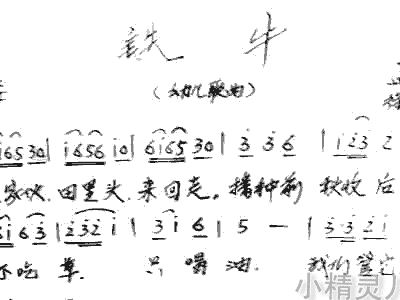 铁 牛
(幼儿歌曲)
i65 30 | i656 i0 | 6i65 30 | 3 36 | i23 2
家伙, 田里头, 来回走。播种前 秋收后
i 63 | 232 i | 3i 6 | 5 — | 3·3 2i
不吃草, 只喝油. 我们
小精灵儿